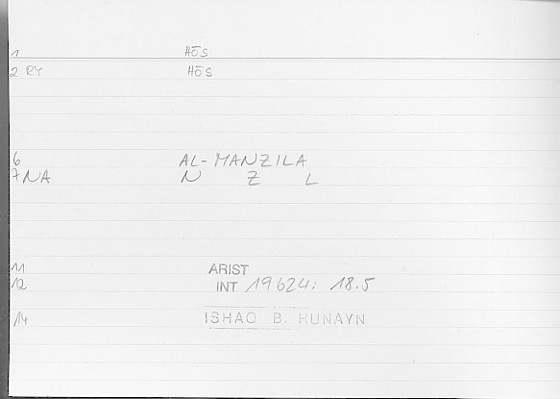 1 HŌS
2 RY HŌS
6 AL-MANZILA
7 NA N Z L
11 ARIST
12 INT 19624: 18.5
14 ISHAQ B. HUNAYN